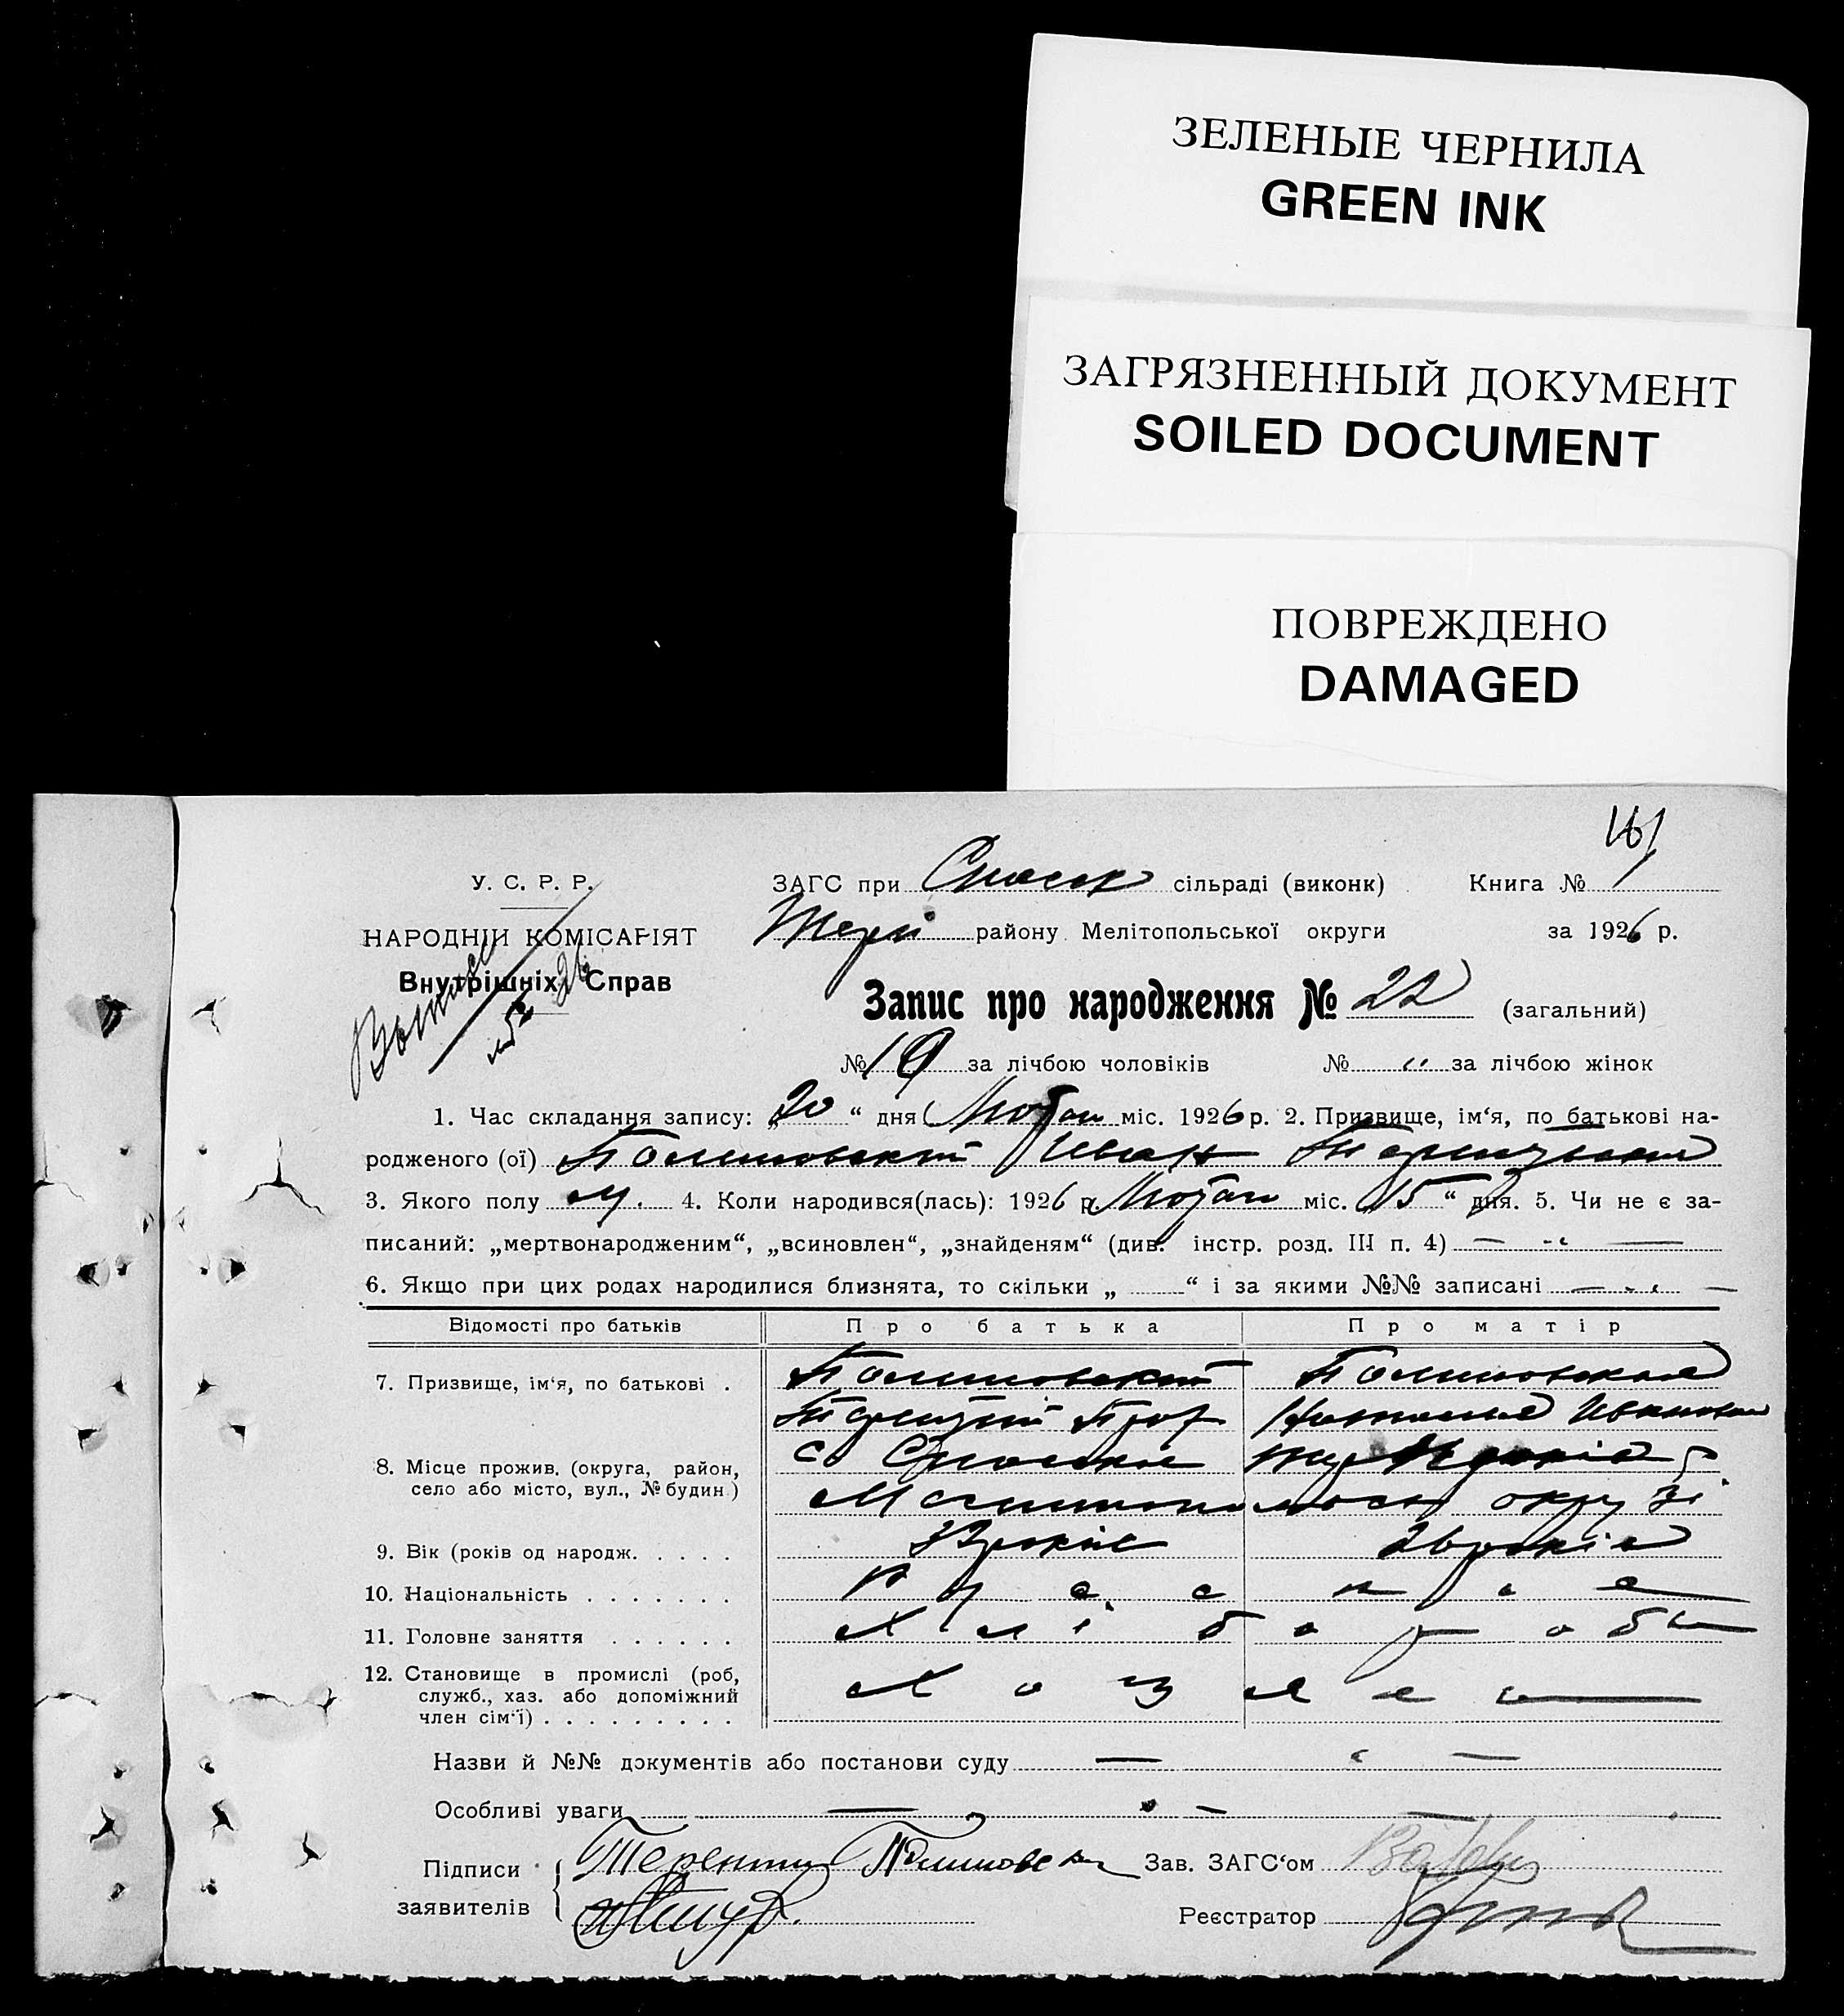 ЗЕЛЕНЫЕ ЧЕРНИЛА
GREEN INK
ЗАГРЯЗНЕННЫЙ ДОКУМЕНТ
SOILED DOCUMENT
ПОВРЕЖДЕНО
DAMAGED
161
У. С. Р. Р.
НАРОДНІЙ КОМІСАРІЯТ
Внутрішніх Справ
ЗАГС при Спаськ сільраді (виконк) Книга № 1
району Мелітопольської округи за 1926 р.
Запис про народження № 22 (загальний)
№ 19 за лічбою чоловіків № „ за лічбою жінок
1. Час складання запису: „20“ дня Лютого міс. 1926 р. 2. Призвище, ім‘я, по батькові на-
родженого (ої) Иван
3. Якого полу М. 4. Коли народився(лась): 1926 р. Лютого міс. „15“ дня. 5. Чи не є за-
писаний: „мертвонародженим“, „всиновлен“, „знайденям“ (див. інстр. розд. III п. 4) — „ —
6. Якщо при цих родах народилися близнята, то скільки „ “ і за якими №№ записані — „ —
Відомості про батьків Про батька Про матір
7. Призвище, ім‘я, по батькові .
Ивановна
8. Місце прожив. (округа, район,
село або місто, вул., № будин.)
с. Спаське
Мелитопольської округі
9. Вік (років од народж. . . . . років 26 років
10. Національність . . . . . . . Русские
11. Головне заняття . . . . . . Хлібороби
12. Становище в промислі (роб,
служб., хаз. або допоміжний
член сім‘ї) . . . . . . . . . Хозяеи
Назви й №№ документів або постанови суду — „ —
Особливі уваги — „ —
Підписи
заявителів
Терентий
Зав. ЗАГС‘ом
Реєстратор